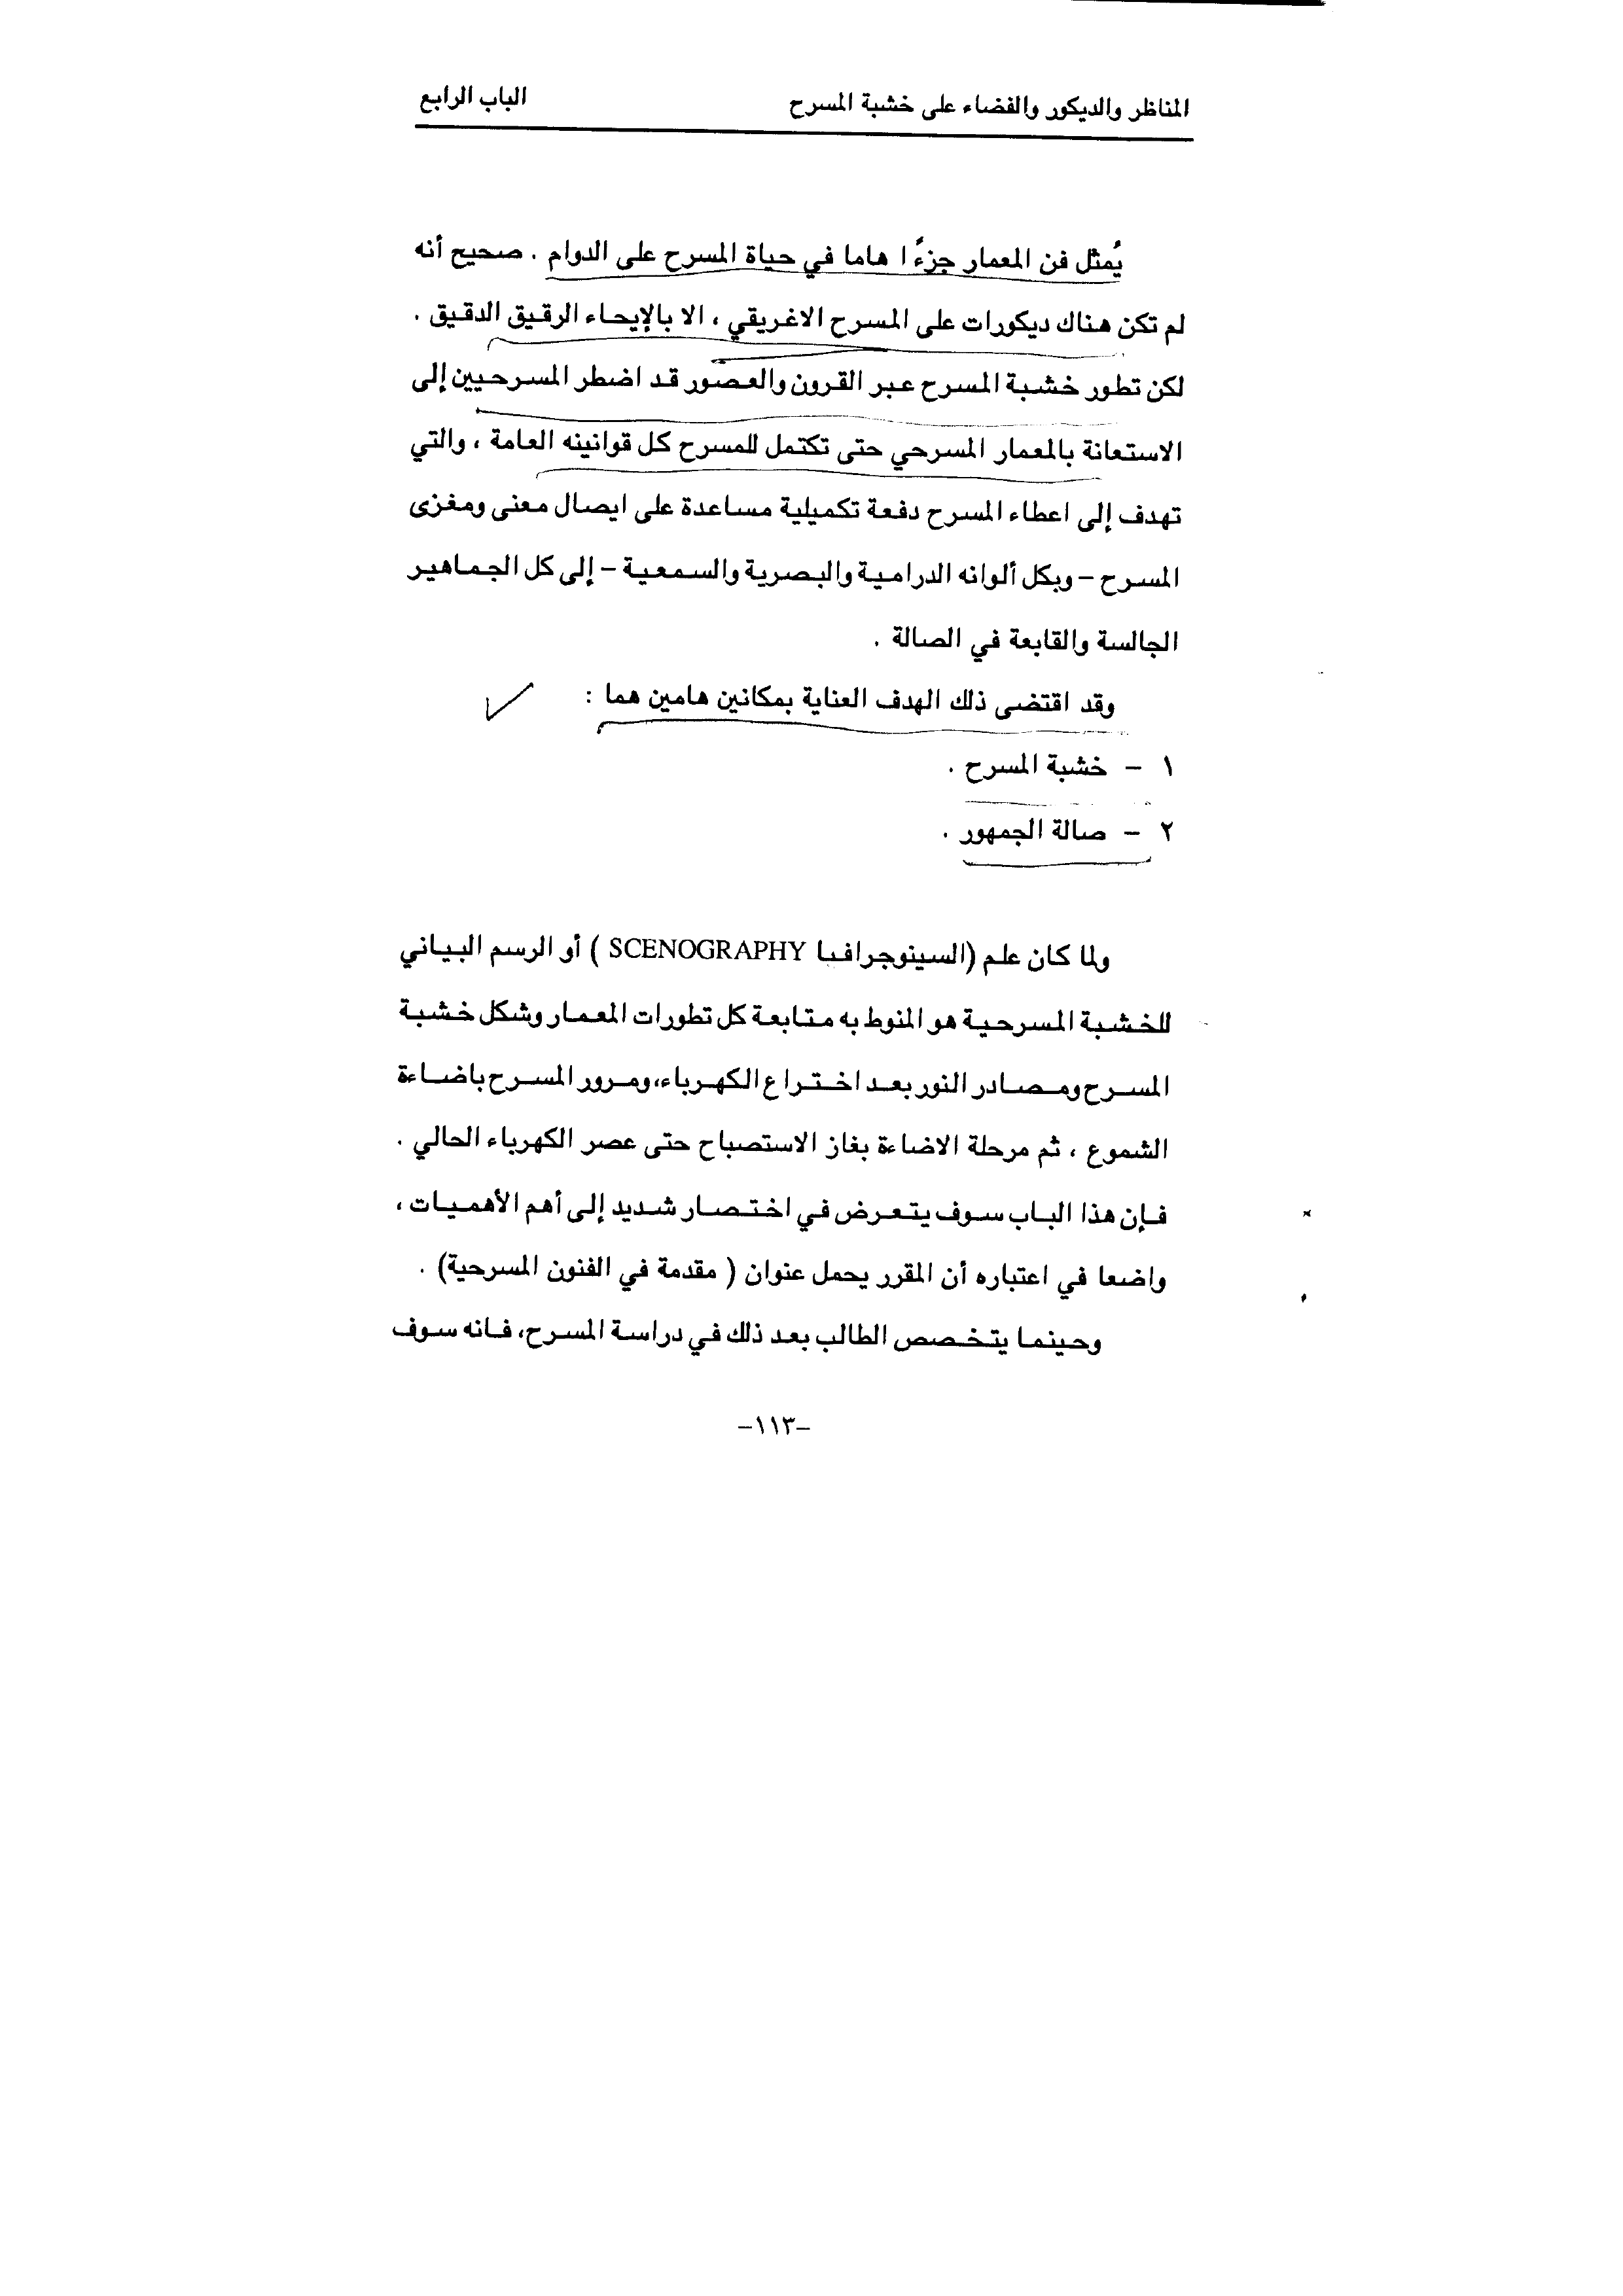 المناظر والديكور والفضاء على خشبة المسرح الباب الرابع
يُمثل فن المعمار جزءًا هاما في حياة المسرح على الدوام . صحيح أنه
لم تكن هناك ديكورات على المسرح الاغريقي ، الا بالإيحاء الرقيق الدقيق .
لكن تطور خشبة المسرح عبر القرون والعصور قد اضطر المسرحيين إلى
الاستعانة بالمعمار المسرحي حتى تكتمل للمسرح كل قوانينه العامة ، والتي
تهدف إلى اعطاء المسرح دفعة تكميلية مساعدة على ايصال معنى ومغزى
المسرح – وبكل ألوانه الدرامية والبصرية والسمعية – إلى كل الجماهير
الجالسة والقابعة في الصالة .
وقد اقتضى ذلك الهدف العناية بمكانين هامين هما :
١ – خشبة المسرح .
٢ – صالة الجمهور .
ولما كان علم (السينوجرافيا SCENOGRAPHY ) أو الرسم البياني
للخشبة المسرحية هو المنوط به متابعة كل تطورات المعمار وشكل خشبة
المسرح ومصادر النور بعد اختراع الكهرباء، ومرور المسرح باضاءة
الشموع ، ثم مرحلة الاضاءة بغاز الاستصباح حتى عصر الكهرباء الحالي .
فإن هذا الباب سوف يتعرض في اختصار شديد إلى أهم الأهميات ،
واضعا في اعتباره أن المقرر يحمل عنوان ( مقدمة في الفنون المسرحية) .
وحينما يتخصص الطالب بعد ذلك في دراسة المسرح، فانه سوف
–١١٣–